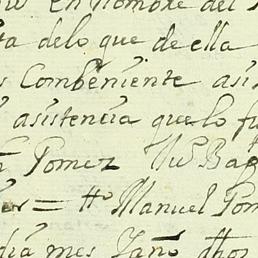 en nombre del
ta delo que de ella
s Combeniente asis
asistencia que lo fu
Gomez Bag
= Manuel Gom
dia mes Año dhos